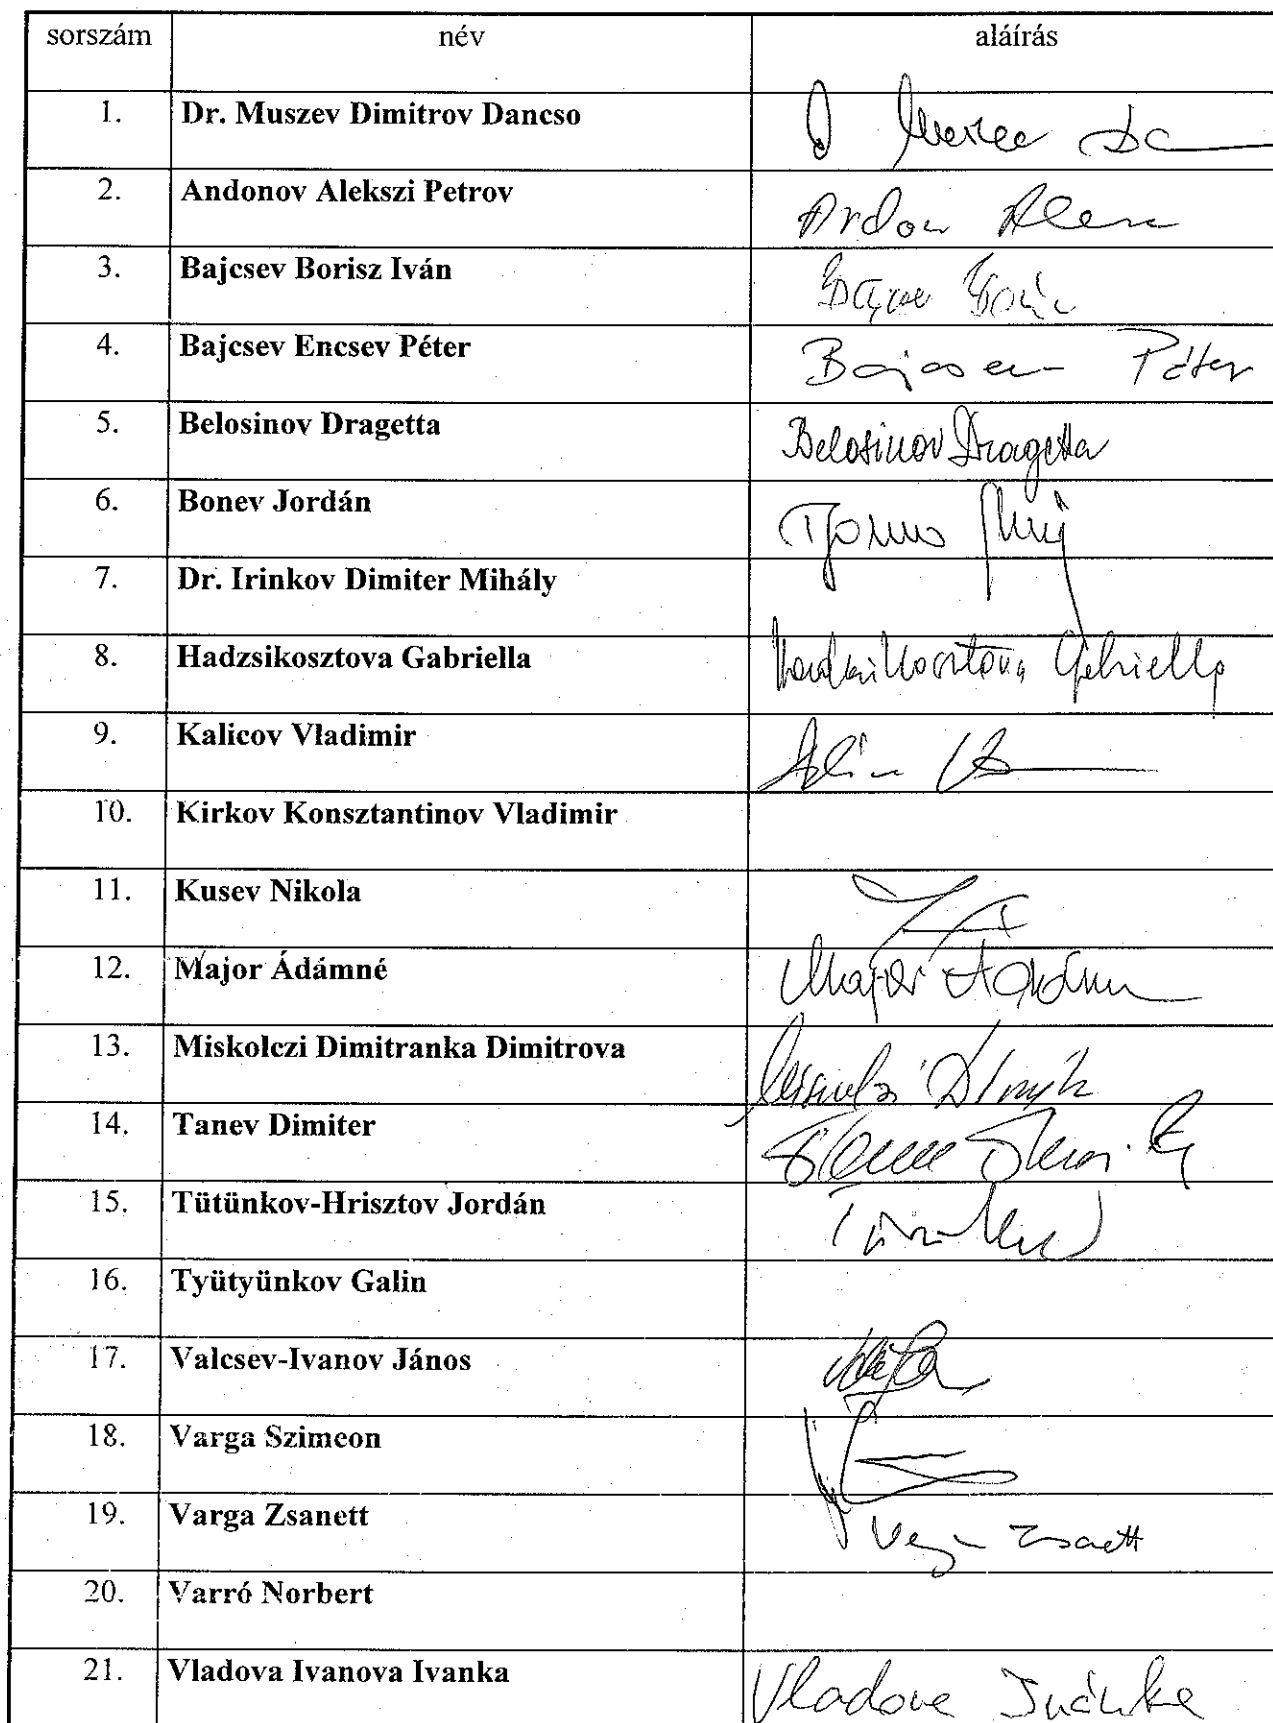 sorszám név aláírás
1. Dr. Muszev Dimitrov Dancso
2. Andonov Alekszi Petrov
3. Bajcsev Borisz Iván
4. Bajcsev Encsev Péter Bajcsev Péter
5. Belosinov Dragetta Belosinov Dragetta
6. Bonev Jordán
7. Dr. Irinkov Dimiter Mihály
8. Hadzsikosztova Gabriella Hadzsikosztova Gabriella
9. Kalicov Vladimir
10. Kirkov Konsztantinov Vladimir
11. Kusev Nikola
12. Major Ádámné Major Ádámné
13. Miskolczi Dimitranka Dimitrova
14. Tanev Dimiter
15. Tütünkov-Hrisztov Jordán
16. Tyütyünkov Galin
17. Valcsev-Ivanov János
18. Varga Szimeon
19. Varga Zsanett Varga Zsanett
20. Varró Norbert
21. Vladova Ivanova Ivanka Vladova Ivánka